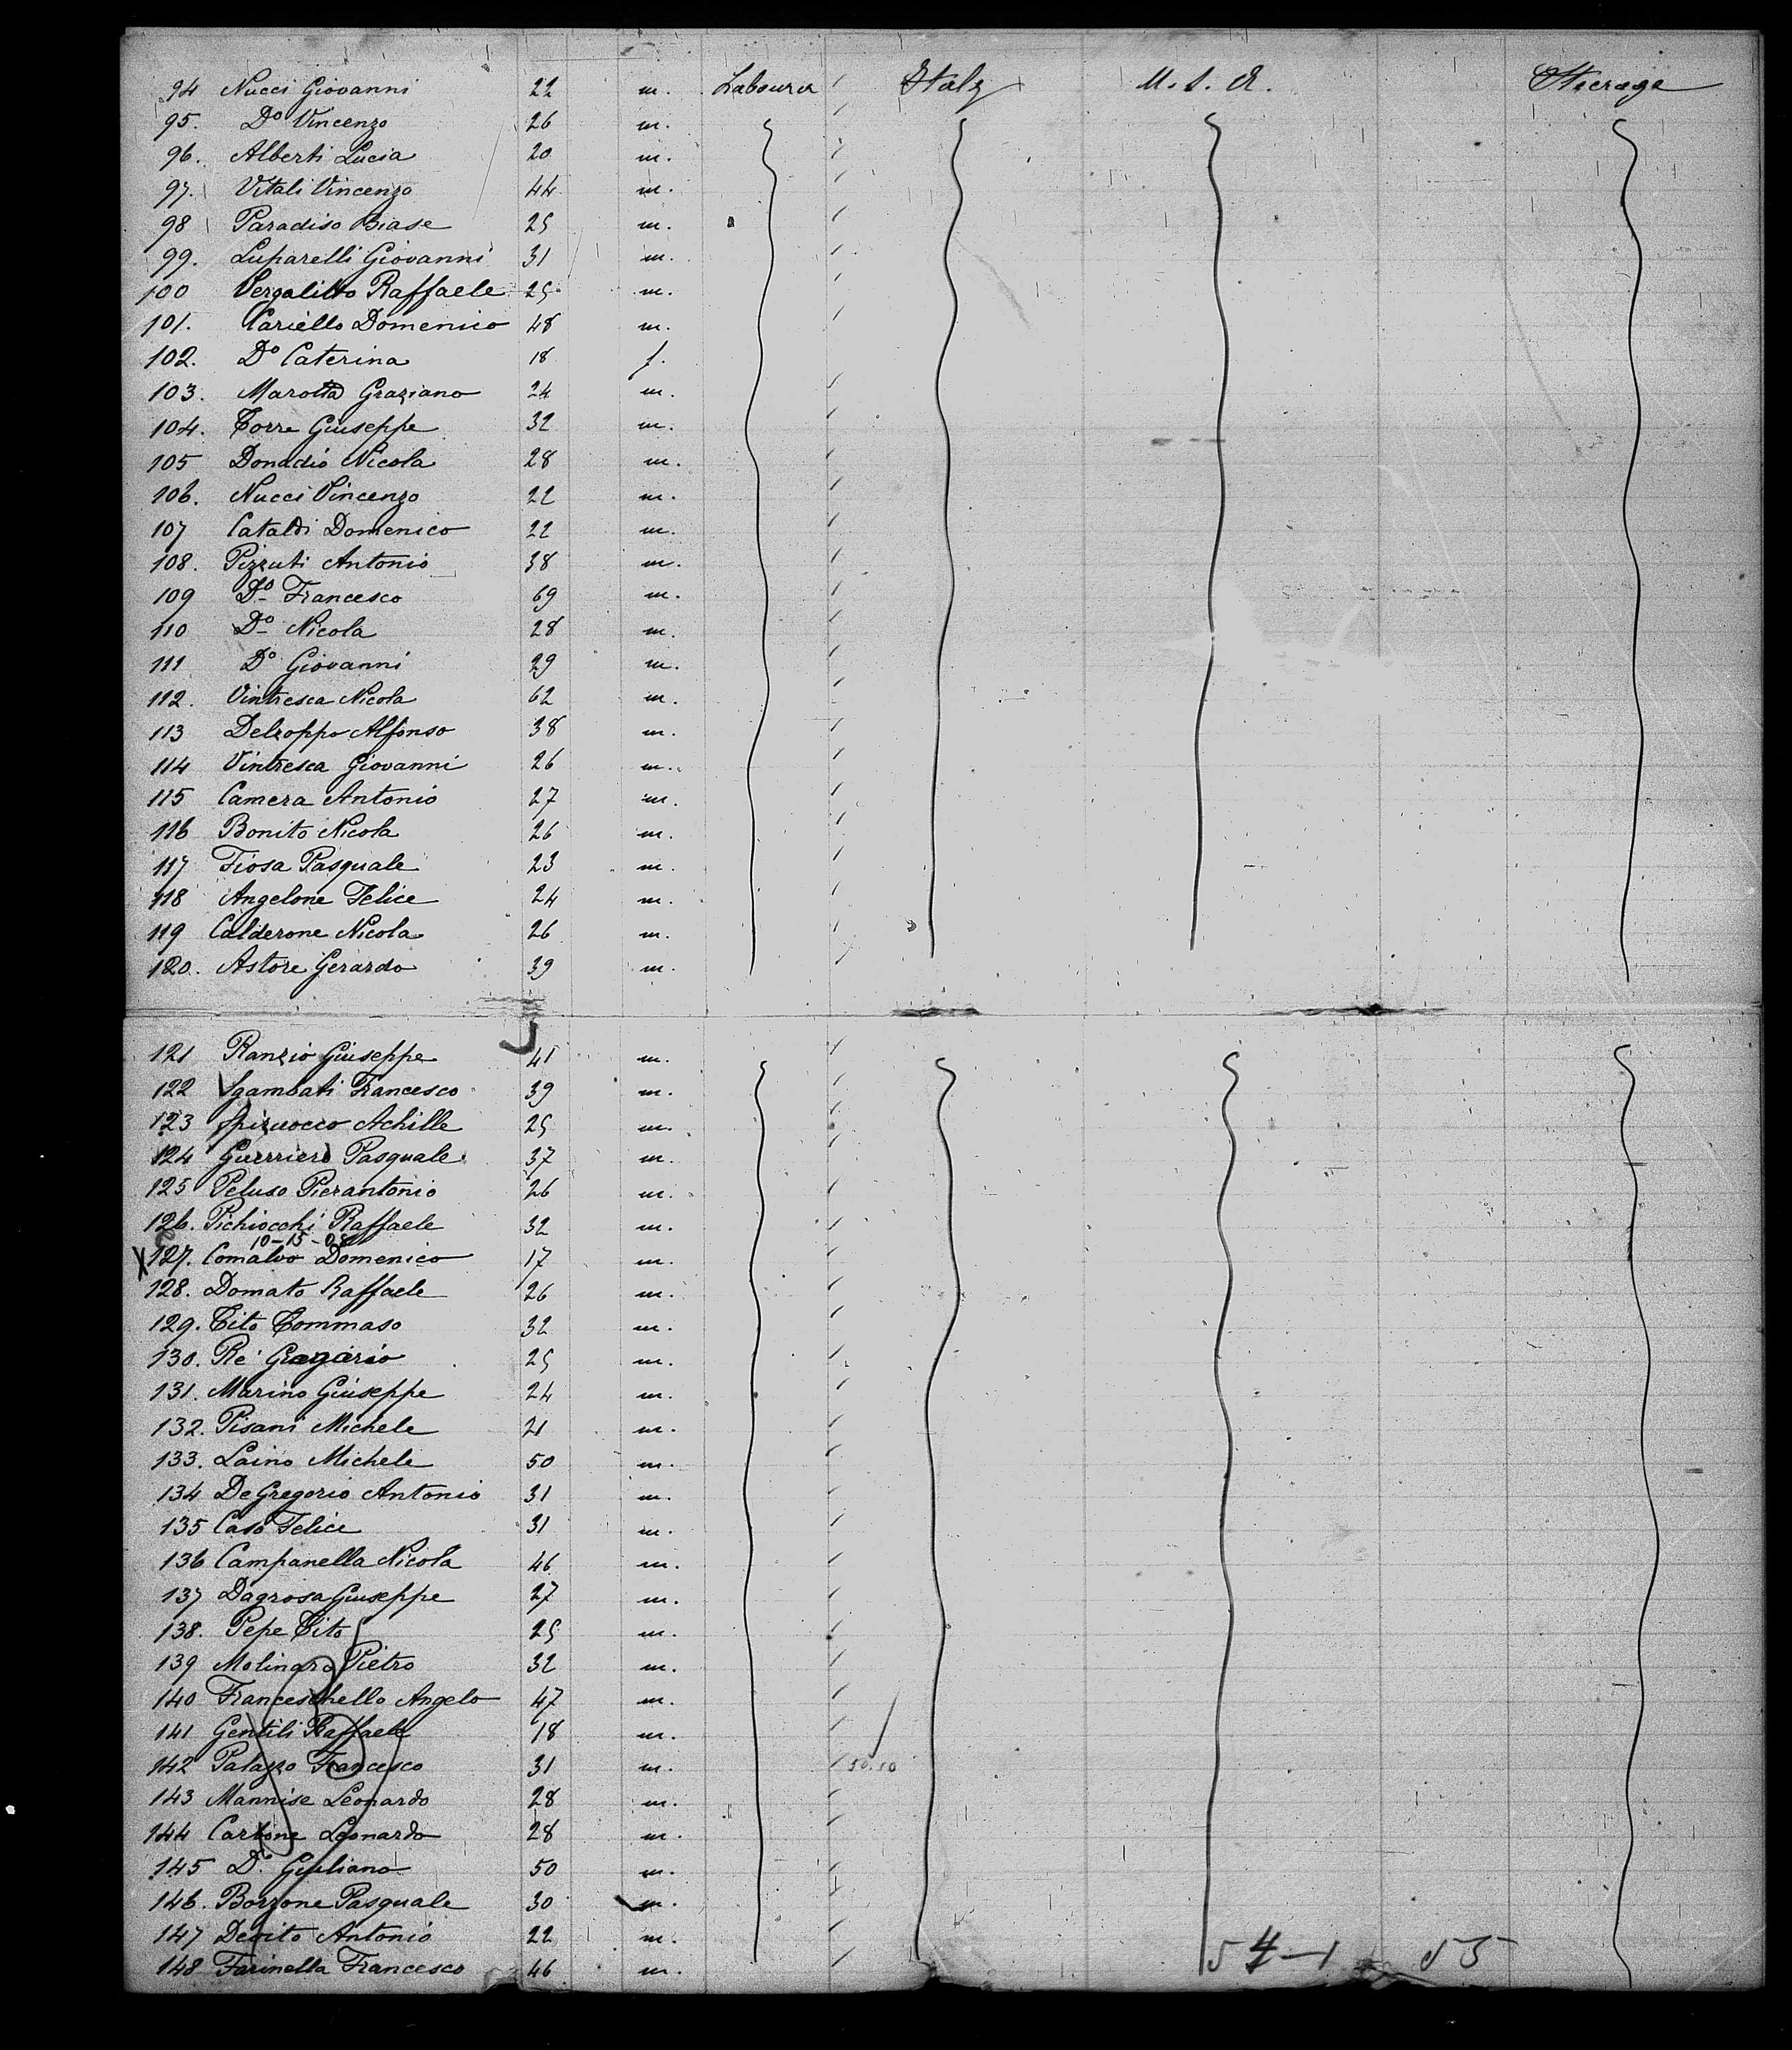 94 Nucci Giovanni 22 m. Labourer Italy U.S.A. Steerage
95. Do Vincenzo 26 m.
96. Alberti Lucia 20 m.
97. Vitali Vincenzo 44 m.
98 Paradiso Biase 25 m.
99. Luparelli Giovanni 31 m.
100 Vergalitto Raffaele 25 m.
101. Cariello Domenico 48 m.
102. Do Caterina 18 f.
103. Marotta Graziano 24 m.
104. Torre Giuseppe 32 m.
105 Donadio Nicola 28 m.
106. Nucci Vincenzo 22 m.
107 Cataldi Domenico 22 m.
108. Pizzuti Antonio 38 m.
109 Do Francesco 69 m.
110 Do Nicola 28 m.
111 Do Giovanni 29 m.
112. Vintresca Nicola 62 m.
113 Delzoppo Alfonso 38 m.
114 Vintresca Giovanni 26 m.
115 Camera Antonio 27 m.
116 Bonito Nicola 26 m.
117 Fiosa Pasquale 23 m.
118 Angelone Felice 24 m.
119 Calderone Nicola 26 m.
120. Astore Gerardo 39 m.
121 Ranzio Giuseppe 41 m.
122 Sgambati Francesco 39 m.
123 Achille 25 m.
124 Guerriero Pasquale 37 m.
125 Peluso Pierantonio 26 m.
126. Pichiocchi Raffaele 32 m.
10-15-
X 127. Comalvo Domenico 17 m.
128. Domato Raffaele 26 m.
129. Tito Tommaso 32 m.
130. Re Gregorio 25 m.
131. Marino Giuseppe 24 m.
132. Pisani Michele 21 m.
133. Laino Michele 50 m.
134 De Gregorio Antonio 31 m.
135 Caso Felice 31 m.
136 Campanella Nicola 46 m.
137 Dagrosa Giuseppe 27 m.
138. Pepe Tito 25 m.
139 Molinaro Pietro 32 m.
140 Franceschello Angelo 47 m.
141 Gentili Raffaele 18 m.
142 Palazzo Francesco 31 m. 50.10
143 Mannise Leonardo 28 m.
144 Carbone Leonardo 28 m.
145 Do. Giuliano 50 m.
146. Borzone Pasquale 30 m.
147 Devito Antonio 22 m.
148 Farinella Francesco 46 m.
54-1 53